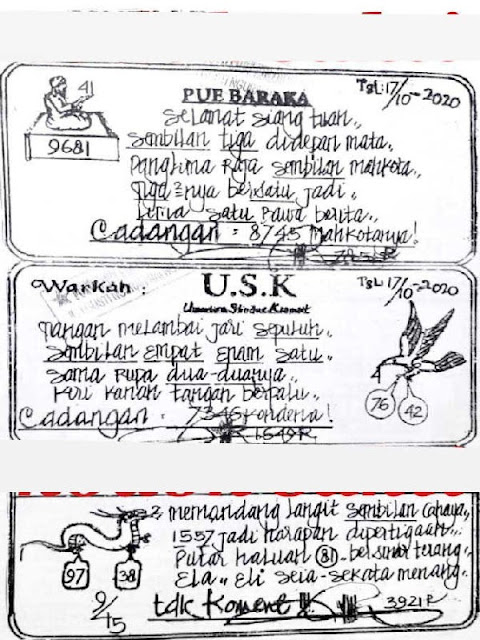 41
9681
PUE BARAKA
Tgl: 17/10-2020
Selamat siang tuan..
Sembilan tiga didepan mata..
Panglima Raja Sembilan Mahkota..
Tiga ² nya bersatu jadi..
satu bawa berita..
Cadangan = 8745 Mahkotanya!
Warkah :
U.S.K
Tgl: 17/10-2020
Tangan melambai jari sepuluh..
Sembilan Empat Enam Satu..
Sama rupa dua-duanya..
Kiri kanan tangan berpalu..
76
42
Cadangan . 7346
1649 R
memandang langit Sembilan cahaya..
1557 jadi harapan dipertigaan..
Putar haluan 81 bersinar terang..
Ela.. Eli seia-sekata menang..
97
38
9/15
tdk Koment !!
3921 R